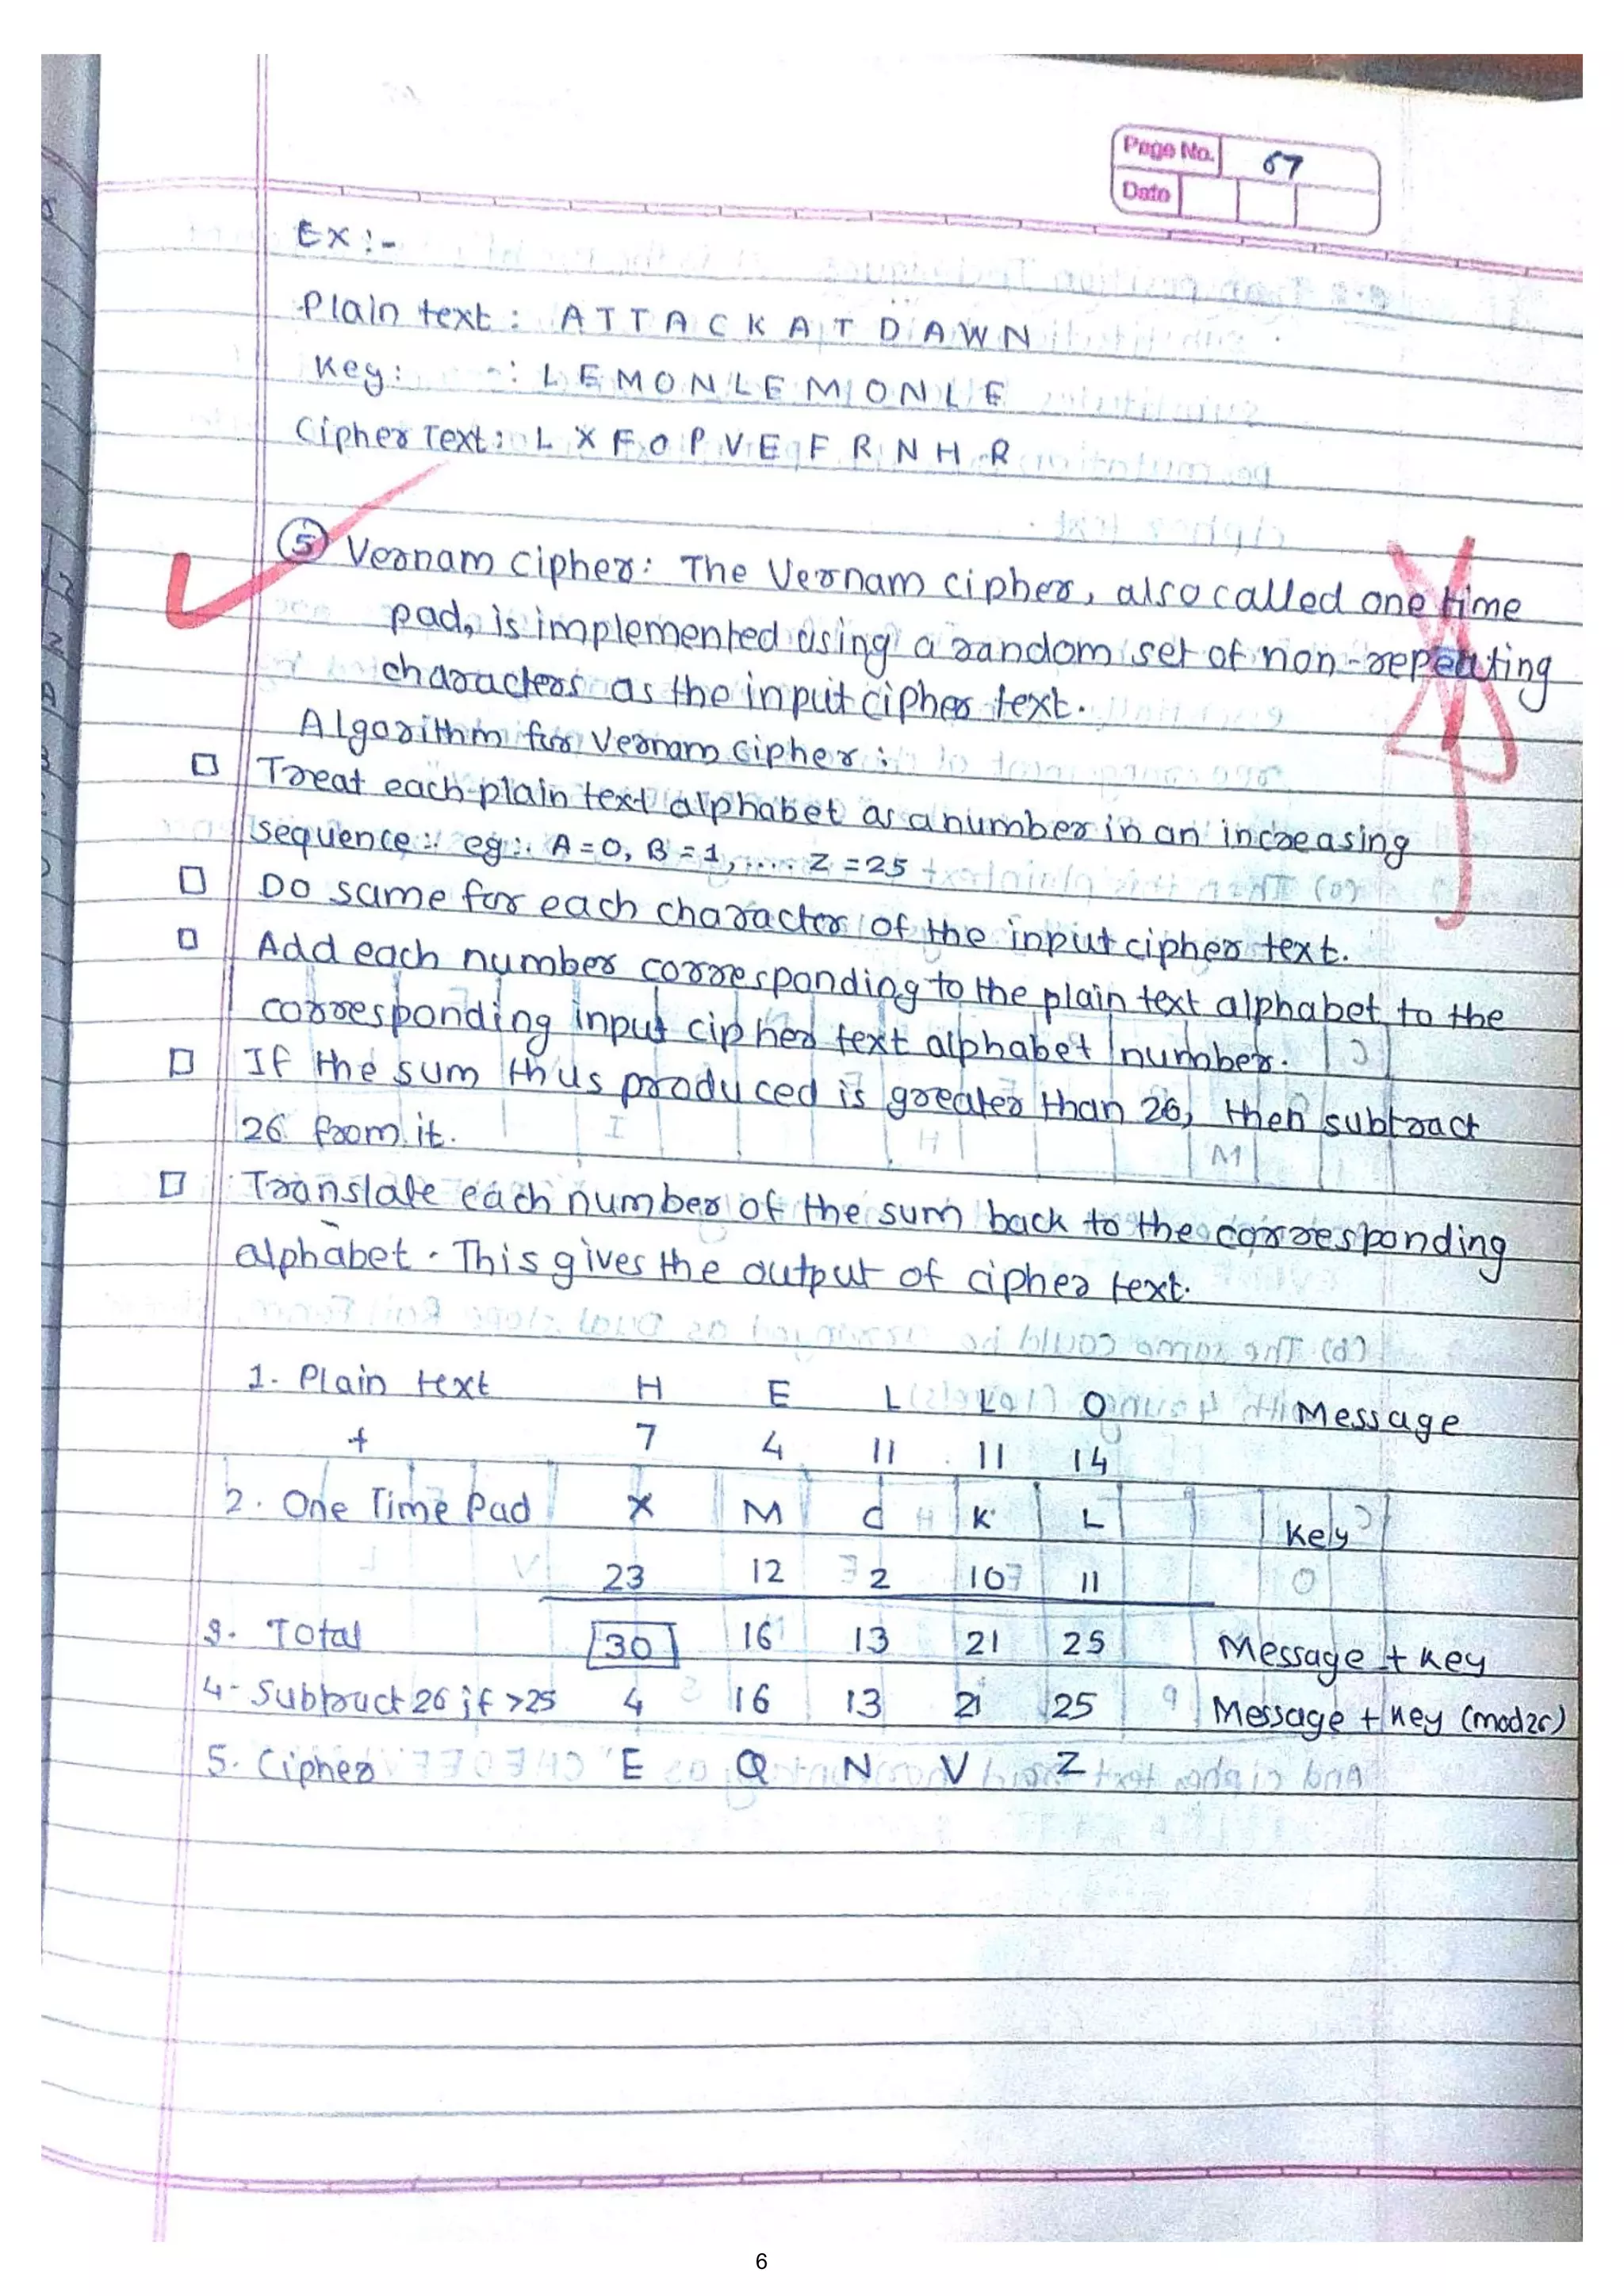 Page No. 67
Date
Ex :-
Plain text : A T T A C K A T D A W N
Key : -: L E M O N L E M O N L E
Cipher Text : L X F O P V E F R N H R
5 Vernam cipher : The Vernam cipher, also called one time
pad, is implemented using a random set of non-repeating
characters as the input cipher text.
Algorithm for Vernam cipher :
Treat each plain text alphabet as a number in an increasing
sequence : eg : A = 0, B = 1, .... Z = 25
Do same for each character of the input cipher text.
Add each number corresponding to the plain text alphabet to the
corresponding input cipher text alphabet number.
If the sum thus produced is greater than 26, then subtract
26 from it.
Translate each number of the sum back to the corresponding
alphabet. This gives the output of cipher text.
1. Plain text H E L L O Message
+ 7 4 11 11 14
2. One Time Pad X M C K L Key
23 12 2 10 11
3. Total 30 16 13 21 25 Message + Key
4- Subtract 26 if >25 4 16 13 21 25 Message + Key (mod26)
5. Cipher E Q N V Z
6